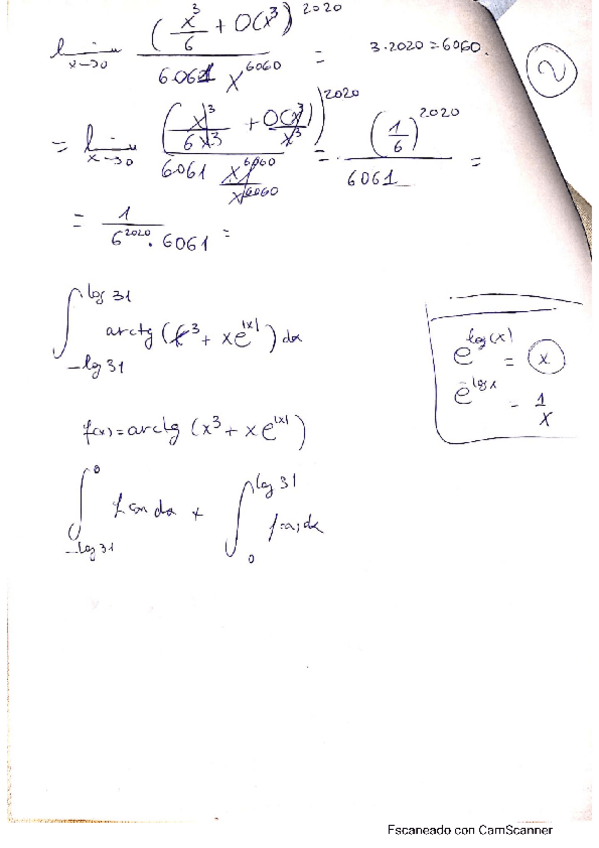 lim x→0 (x³/6 + O(x³))^2020 / 6061 x^6060 = 3·2020=6060.
②
= lim x→0 (x³/6x³ + O(x³)/x³)^2020 / 6061 x^6060/x^6060 = (1/6)^2020 / 6061 =
= 1 / 6^2020 · 6061 =
∫_{-log 31}^{log 31} arctg (x³ + xe^|x|) dx
e^log(x) = x
e^-log x = 1/x
f(x)=arctg (x³ + x e^|x|)
∫_{-log 31}^{0} f(x) dx + ∫_{0}^{log 31} f(x) dx
Escaneado con CamScanner